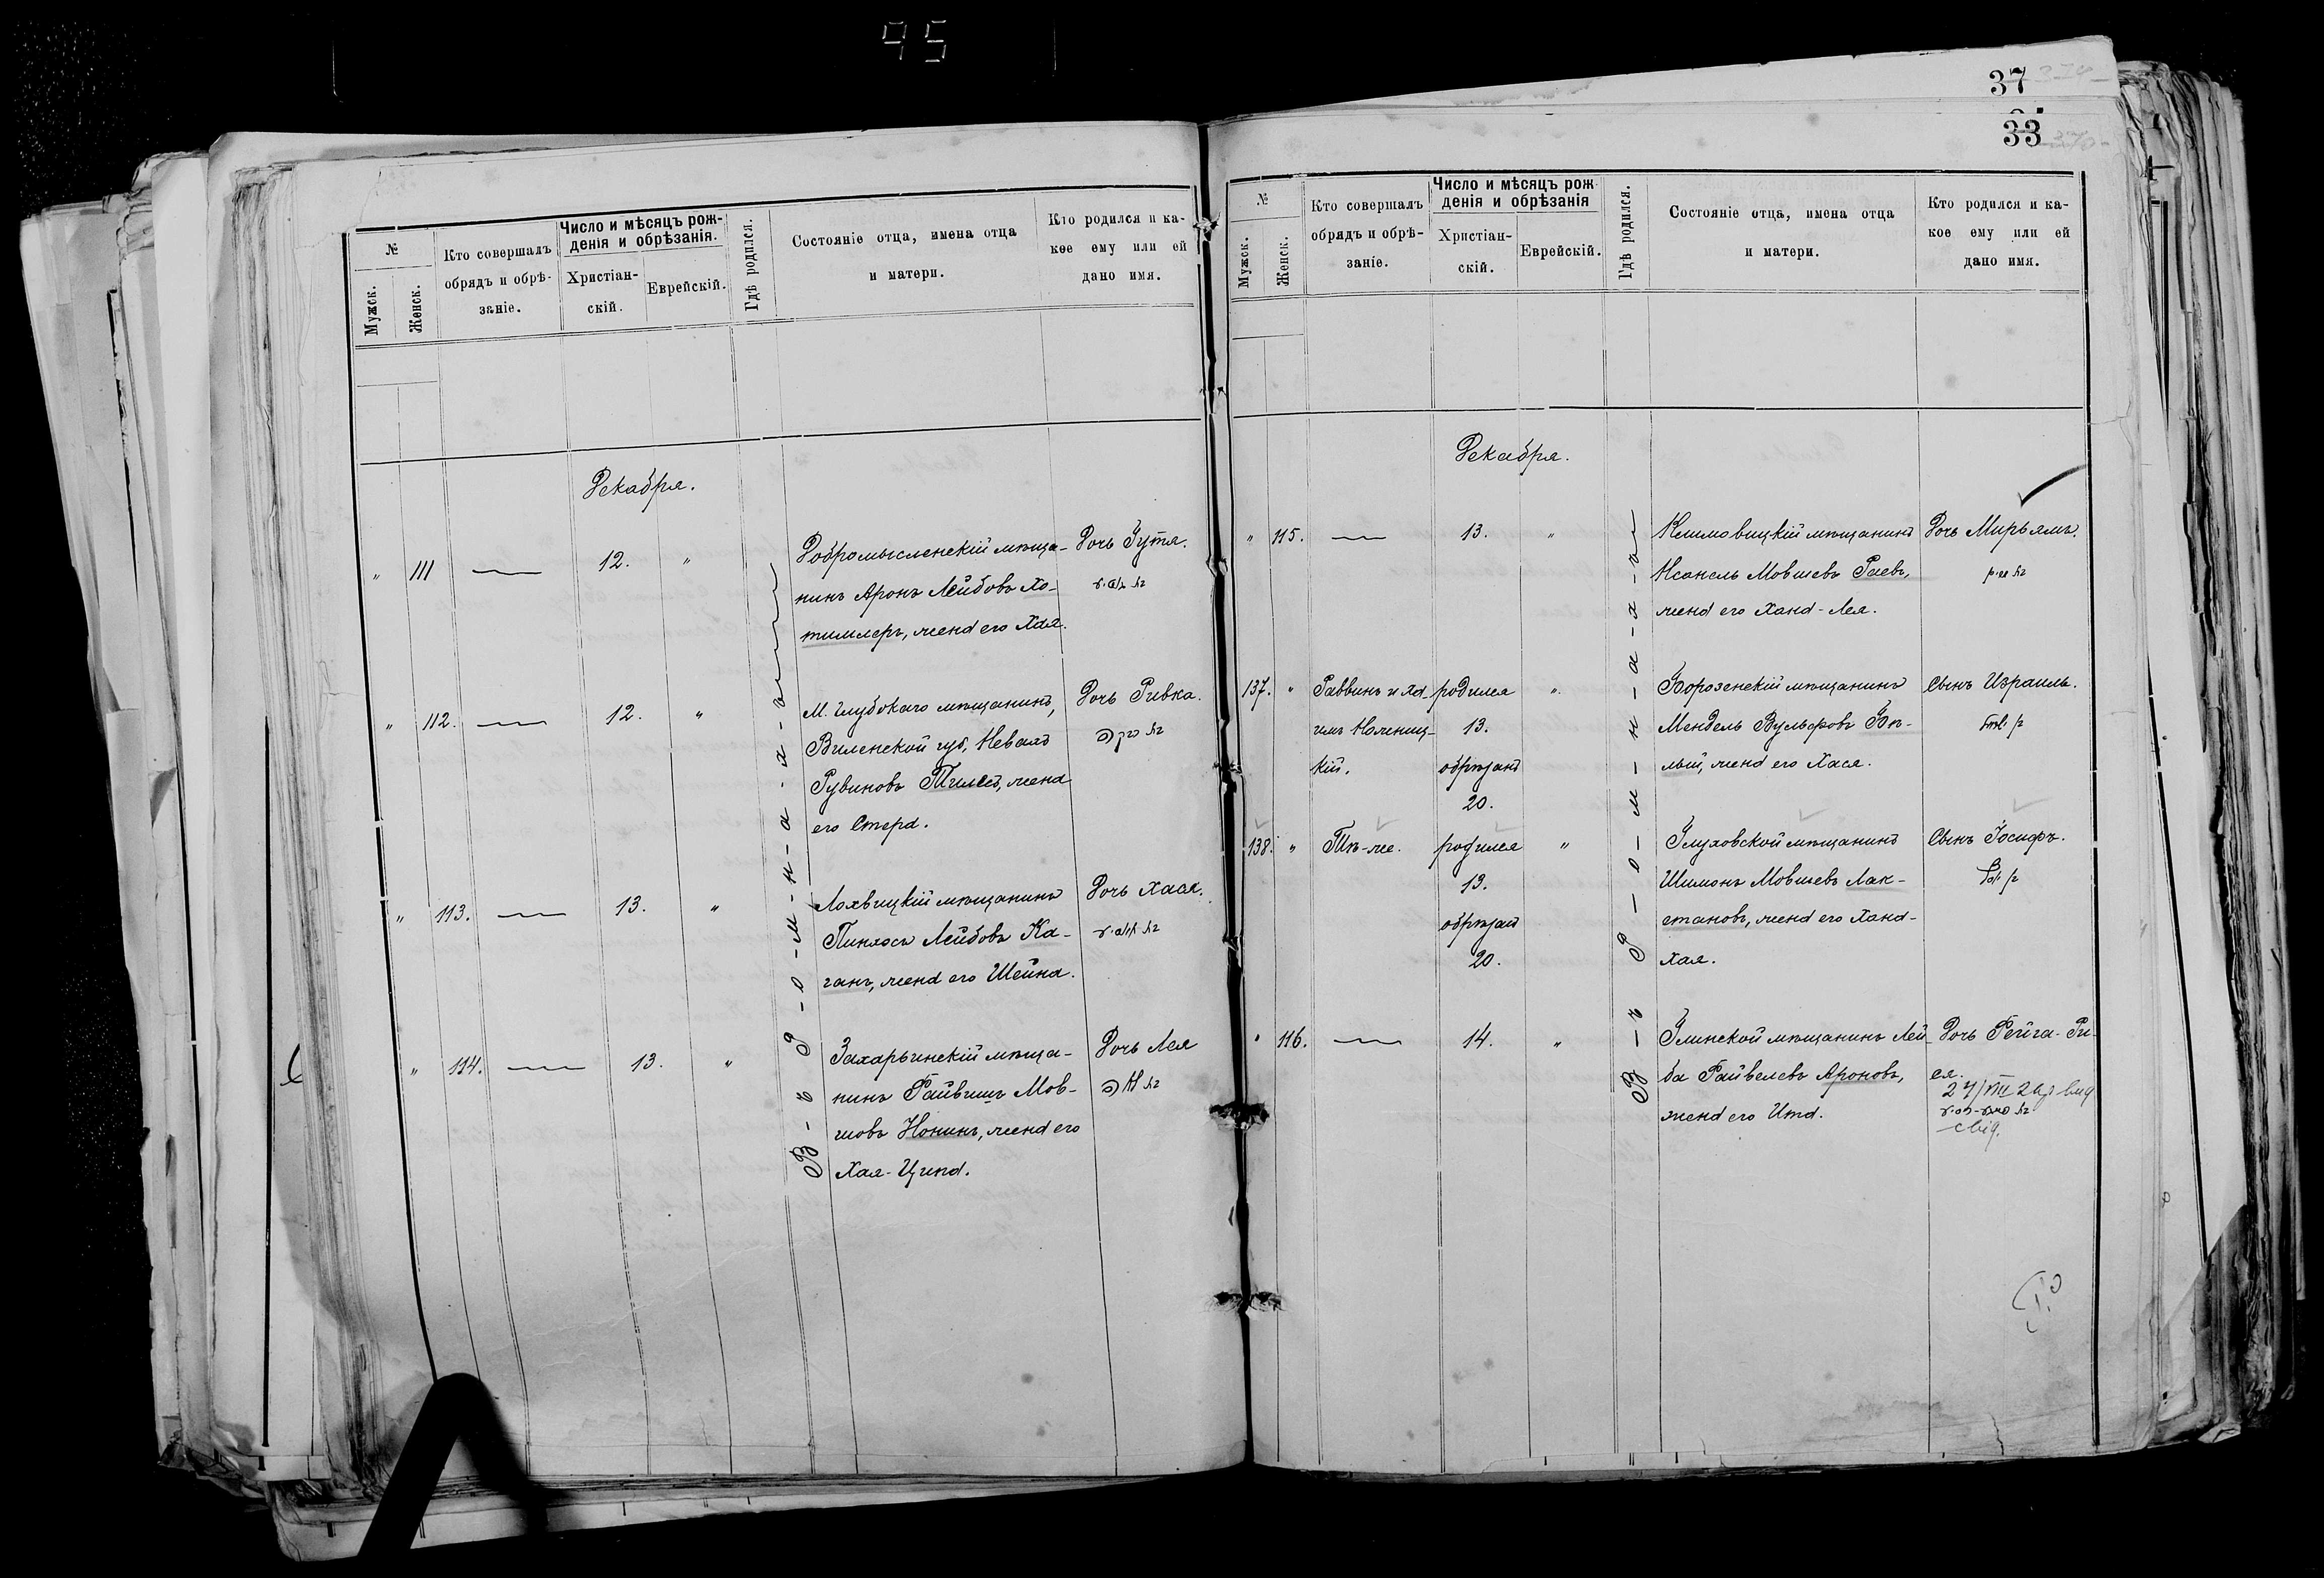 95
37
33
№
Мужск.
Женск.
Кто совершалъ
обрядъ и обрѣ-
заніе.
Число и мѣсяцъ рож-
денія и обрѣзанія.
Христіан-
скій.
Еврейскій.
Гдѣ родился.
Состояніе отца, имена отца
и матери.
Кто родился и ка-
кое ему или ей
дано имя.
Декабря.
" 111 — 12. "
Добромысленскій мѣща-
нинъ Аронъ Лейбовъ Хо-
тимлеръ, жена его Хая.
Дочь Гутя.
" 112. — 12. "
М. Глубокаго мѣщанинъ,
Виленской губ,
Рувиновъ жена
его Стера.
Дочь Ривка.
בת רבקה
" 113. — 13. "
Лохвицкій мѣщанинъ
Пинхосъ Лейбовъ Ка-
ганъ, жена его Шейна.
Дочь Хася.
" 114. — 13. "
Захарьинскій мѣща-
нинъ Файвишъ Мов-
шовъ Нонинъ, жена его
Хая-Ципа.
Дочь Лея
בת לאה
В-ъ Р-о-м-н-а-х-ъ
№
Мужск.
Женск.
Кто совершалъ
обрядъ и обрѣ-
заніе.
Число и мѣсяцъ рож
денія и обрѣзанія
Христіан-
скій.
Еврейскій.
Гдѣ родился.
Состояніе отца, имена отца
и матери.
Кто родился и ка-
кое ему или ей
дано имя.
Декабря.
" 115. — 13. "
Климовицкій мѣщанинъ
Мовшевъ Раевъ,
жена его Хана-Лея.
Дочь Мирьямъ.
בת מרים
137. "
Раввинъ и Ха-
имъ
кій.
родился
13.
обрѣзанъ
20.
"
Борозенскій мѣщанинъ
Мендель Вульфовъ Бѣ-
лый, жена его Хася.
Сынъ Израиль.
בן ישראל
138. "
Тѣ-же.
родился
13.
обрѣзанъ
20.
"
Глуховской мѣщанинъ
Шимонъ Мовшевъ Лак-
становъ, жена его Хана-
Хая.
Сынъ Іосифъ.
בן יוסף
" 116. — 14. "
Глинской мѣщанинъ Лей-
ба Файвелевъ Ароновъ,
жена его Ита.
Дочь Фейга-Ри-
ся.
В-ъ Р-о-м-н-а-х-ъ